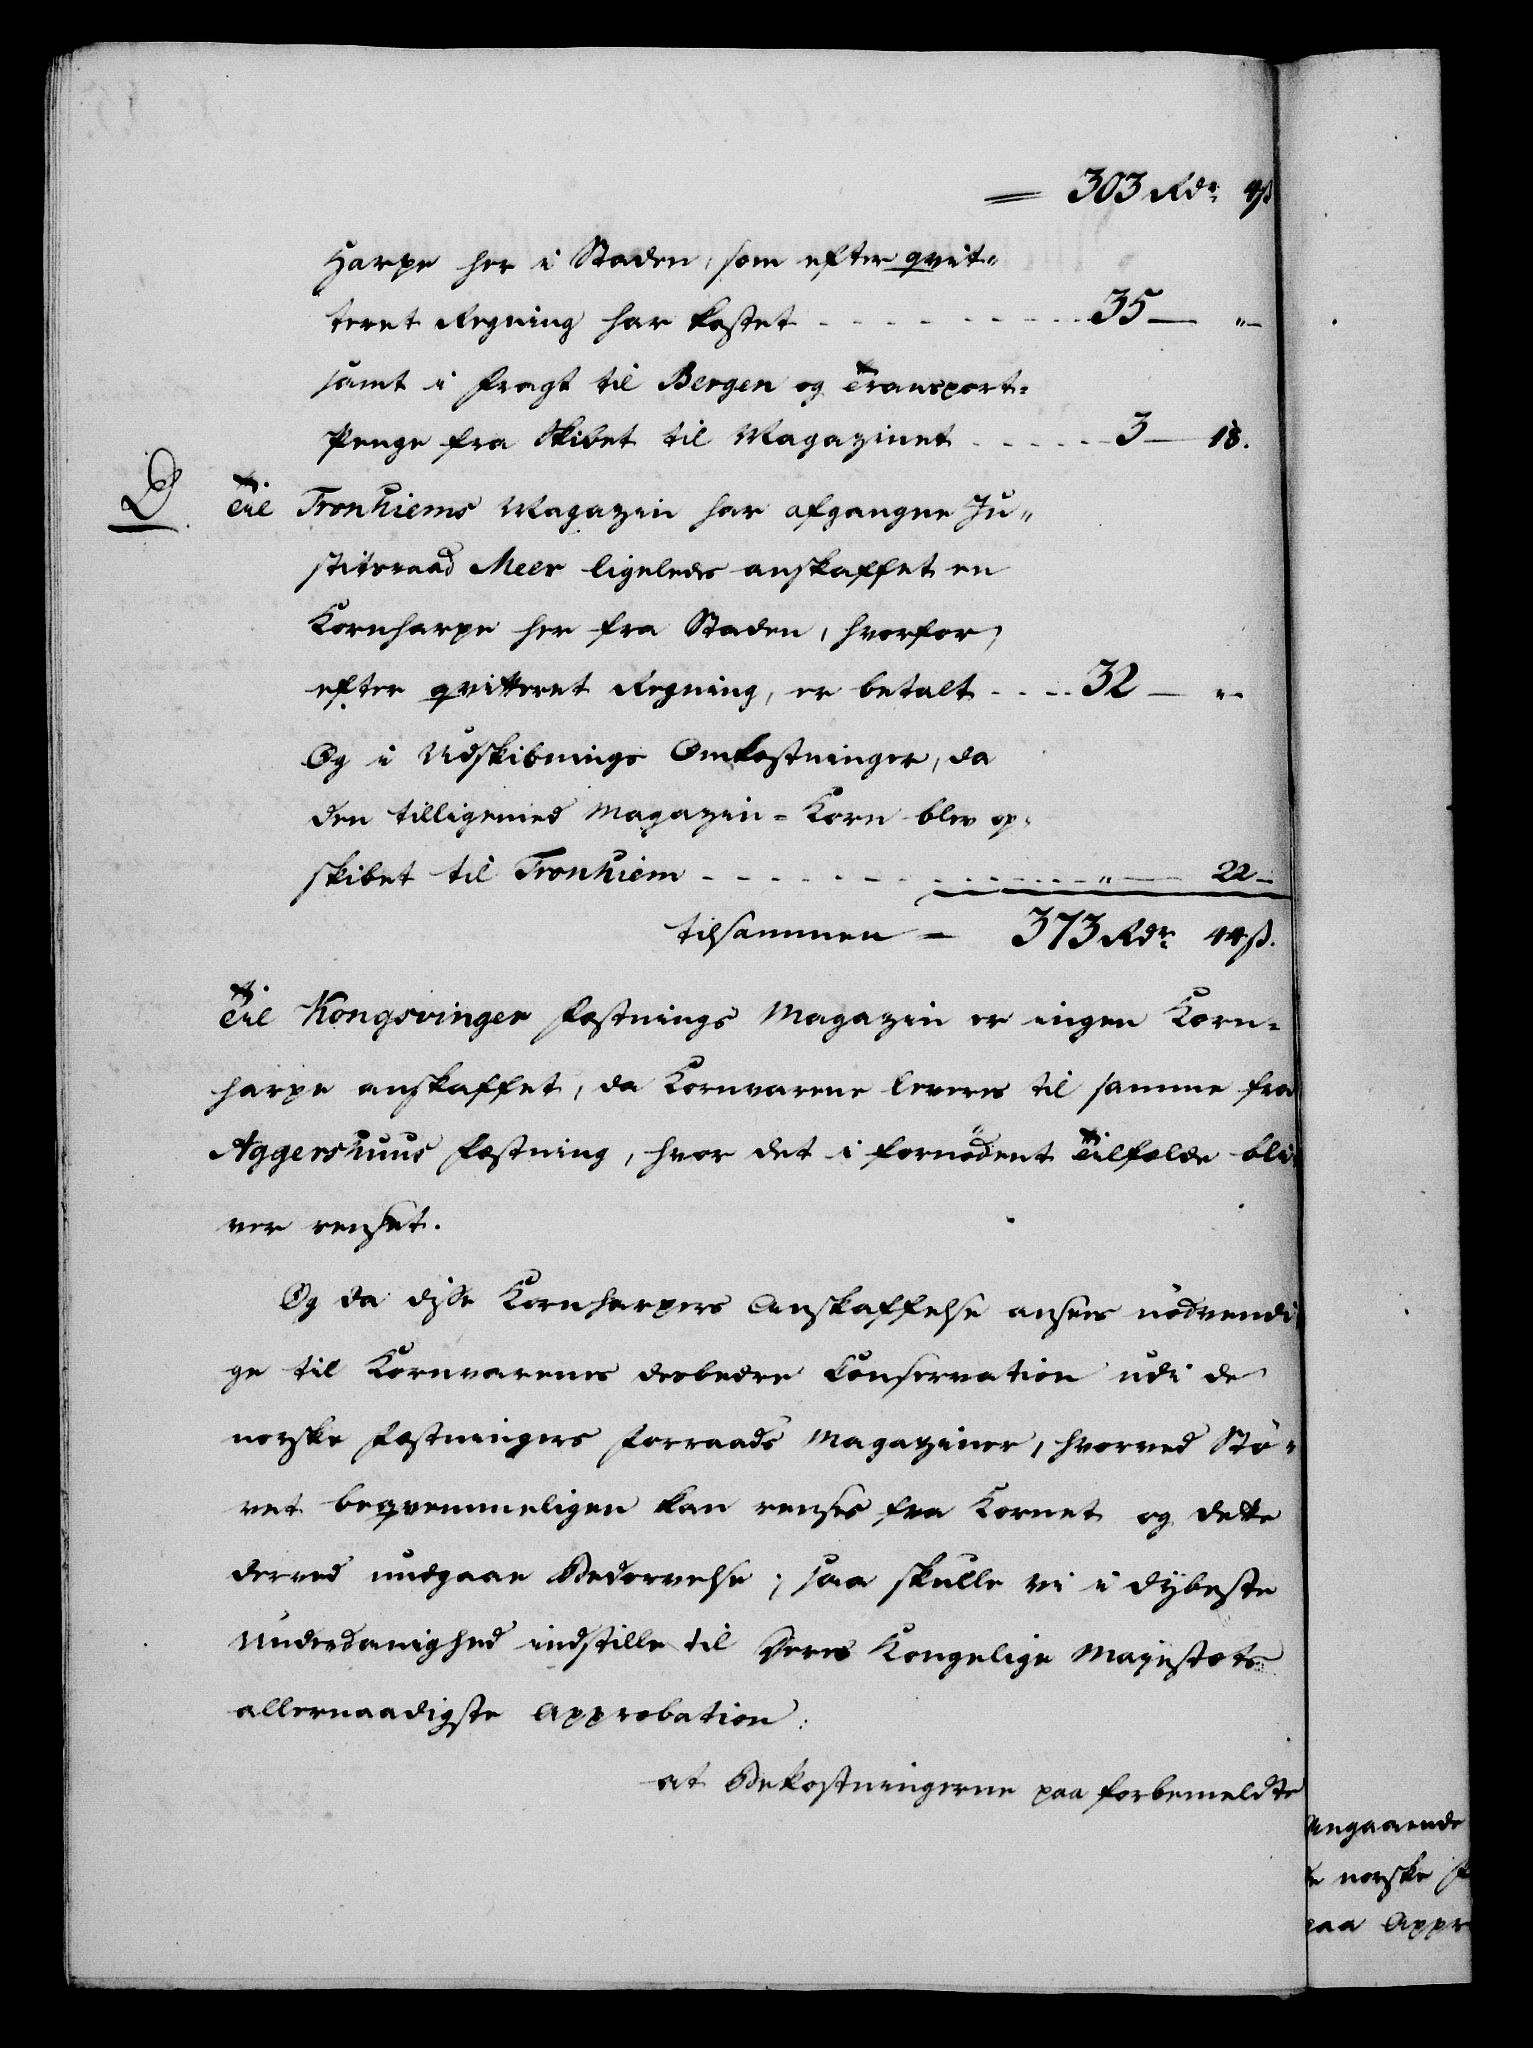 = 303 Rdr 4ß
Harpe her i Staden, som efter qvit-
teret Regning har kostet - - - - - - - - - 35 — "—
samt i Fragt til Bergen og Transport-
Penge fra Skibet til Magazinet - - - - - - 3 — 18.
D. Til Tronhiems Magazin har afgangne Ju-
stitsraad Meer ligeledes anskaffet en
Kornharpe her fra Staden, hvorfor,
efter qvitteret Regning, er betalt - - - - 32 — "—
Og i Udskibnings Omkostninger, da
den tilligemed Magazin-Korn blev op-
skibet til Tronhiem - - - - - - - - - - - - " — 22 —
tilsammen = 373 Rdr 44ß.
Til Kongsvinger Fæstnings Magazin er ingen Korn-
harpe anskaffet, da Kornvarene leveres til samme fra
Aggershuus Fæstning, hvor det i fornödent Tilfælde bli-
ver renset.
Og da disse Kornharpers Anskaffelse ansees nödvendi-
ge til Kornvarenes desbedre Conservation udi de
norske Fæstningers Forraads Magaziner, hvorved Stö-
vet beqvemmeligen kan renses fra Kornet og dette
derved undgaae Bedærvelse; saa skulle vi i dybeste
Underdanighed indstille til Deres Kongelige Majestæts
allernaadigste Approbation:
at Bekostningerne paa forbemeldte
Angaaende
de norske F
paa Appr